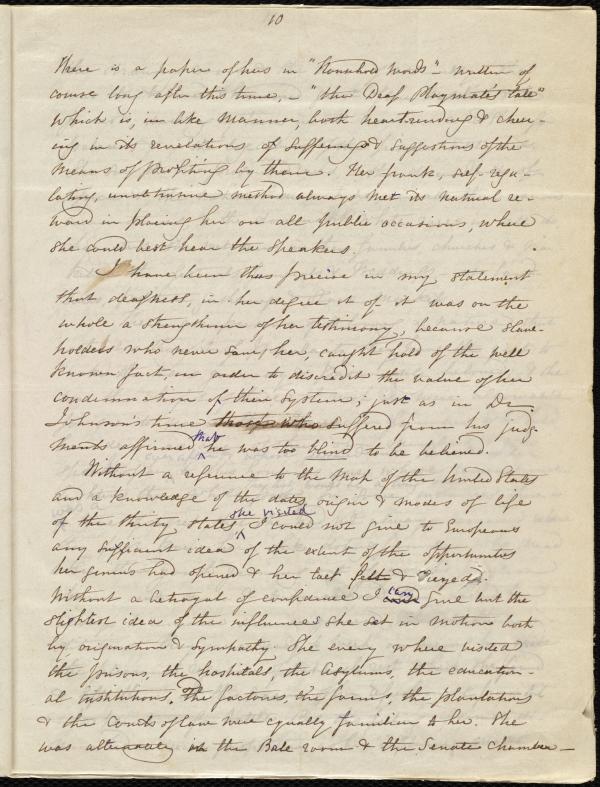 10
There is a paper of hers in "Household Words" - written of
course long after this time, - "the Deaf Playmate's tale"
Which is, in like manner, both heart-rending & cheer-
ing in its revelations of suffering & suggestions of the
means of profiting by them. Her frank, self-regu-
lating, unobtrusive method always met its natural re-
ward in placing her on all public occasions, where
she could best hear the speakers.
I have been thus precise in my statement
that deafness, in her degree of it was on the
whole a strengthener of her testimony, because slave-
holders who never saw her, caught hold of the well
known fact, in order to discredit the value of her
condemnation of their system; just as in Dr.
Johnson's time those who suffered from his judg-
ments affirmed that he was too blind to be believed.
Without a reference to the Map of the United States
and a knowledge of the dates, origin & modes of life
of the thirty states she visited I could not give to Europeans
any sufficient idea of the extent of the opportunities
her genius had opened & her tact felt & seized.
Without a betrayal of confidence I can give but the
slightest idea of the influences she set in motion both
by origination & sympathy. She every where visited
the prisons, the hospitals, the asylums, the education-
al institutions. The factories, the farms, the plantations
& the Courts of law were equally familiar to her. She
was alternately in the Ball room & the Senate chamber -